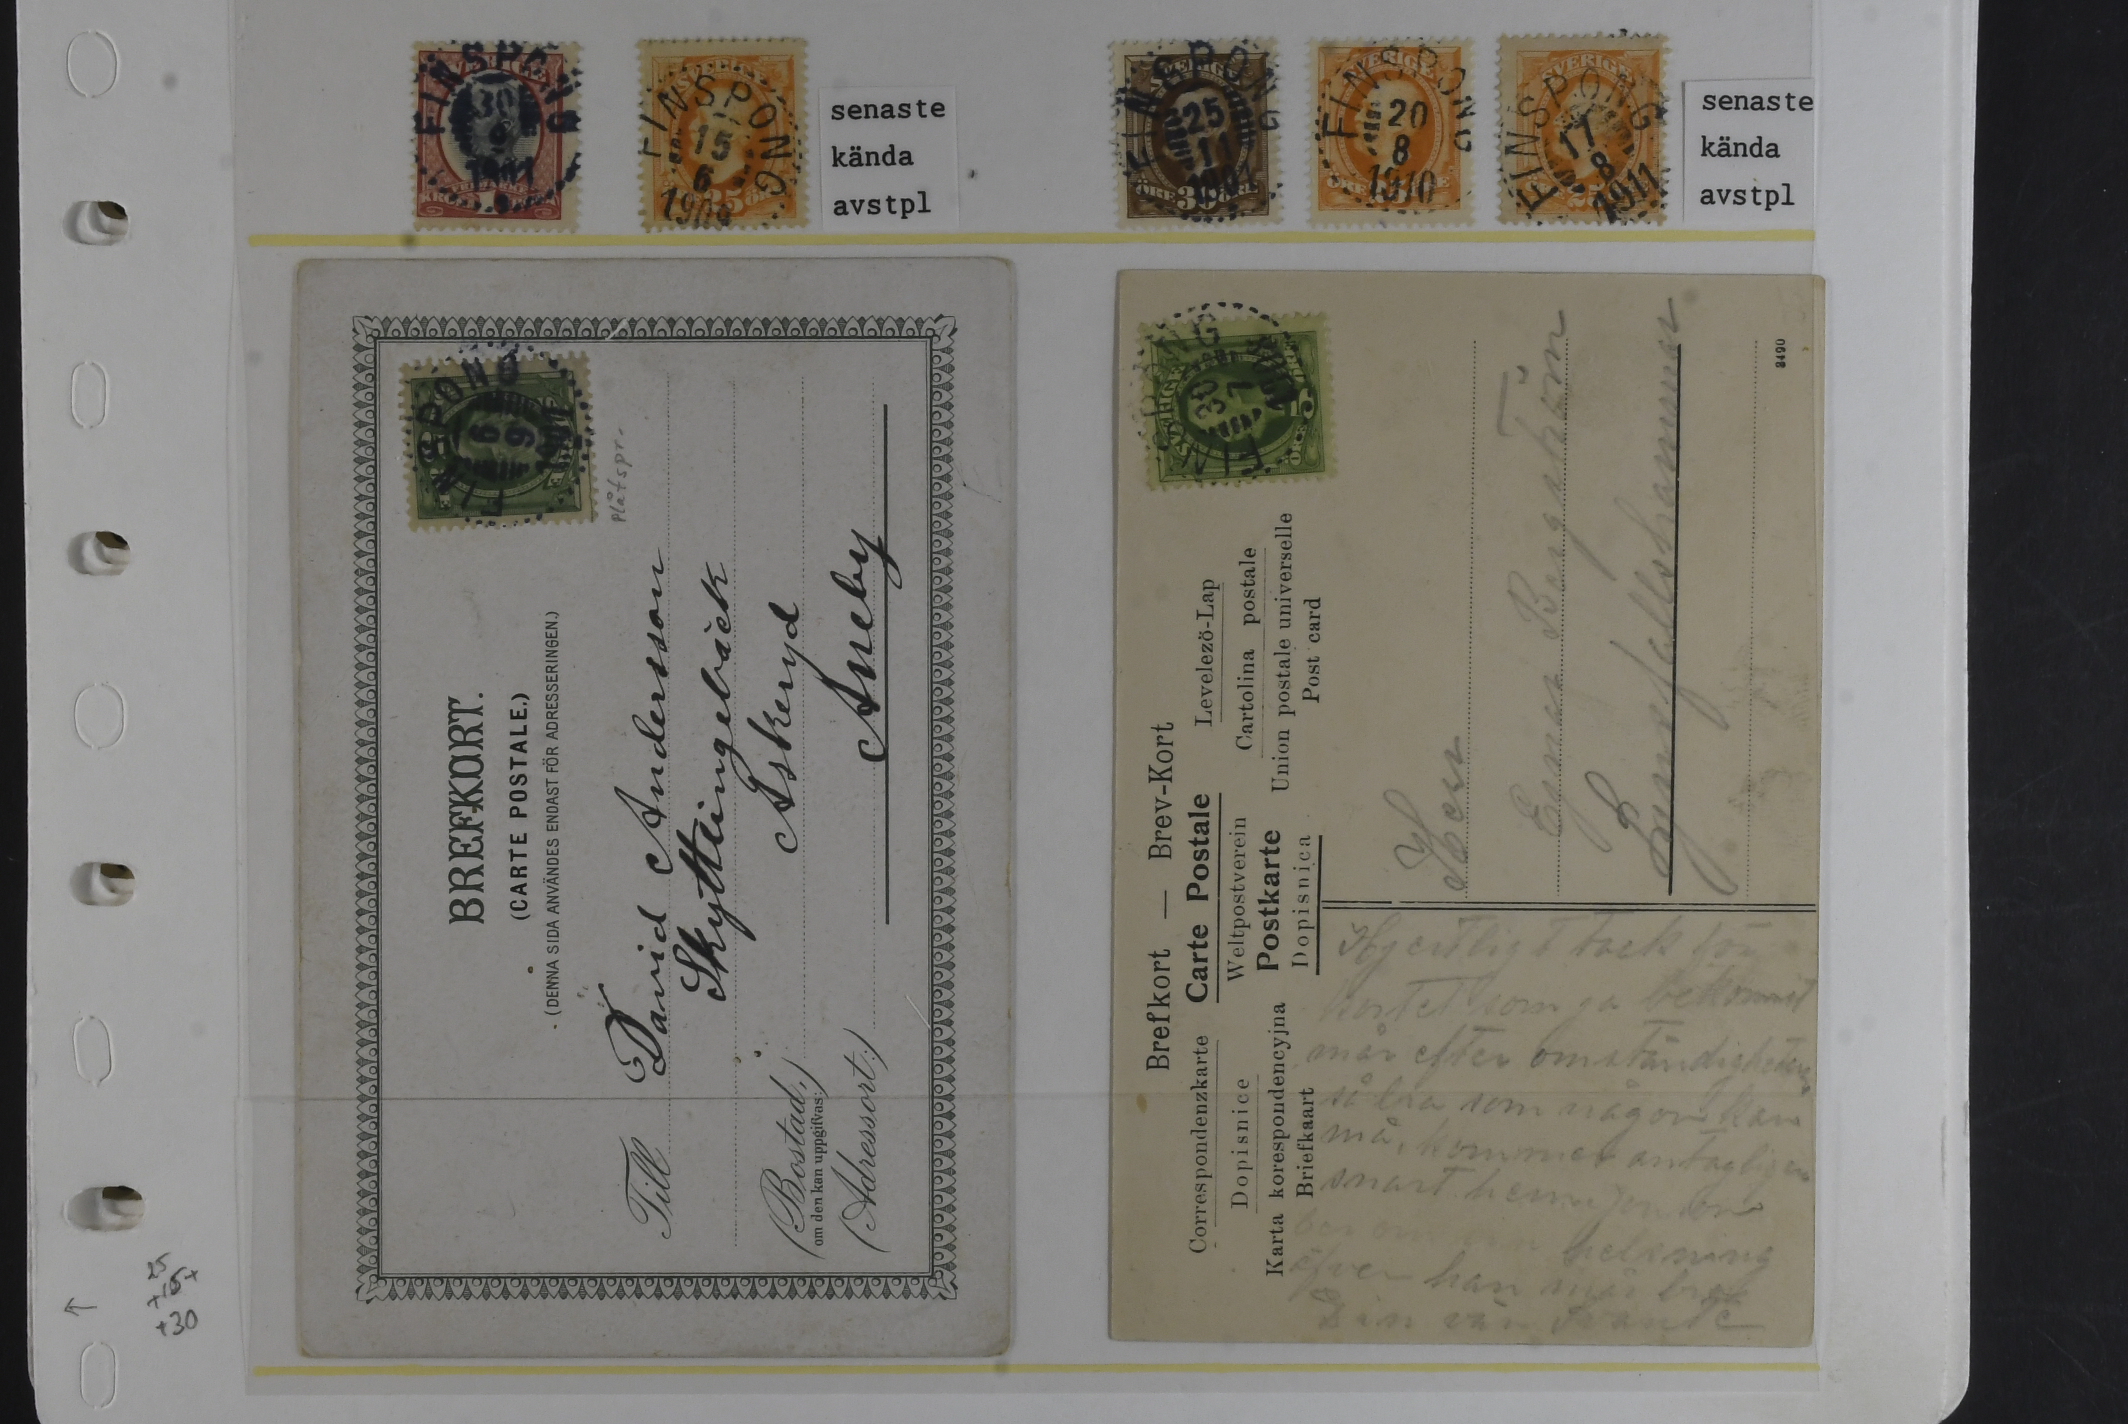 SVERIGE
FINSPONG
30
9
1901
SVERIGE
FINSPONG
15
6
senaste
kända
avstpl
SVERIGE
FINSPONG
25
11
ÖRE 30 ÖRE
SVERIGE
FINSPONG
20
8
1910
SVERIGE
FINSPONG
17
8
1911
senaste
kända
avstpl
FINSPONG
6
9
Plåtspr.
BREFKORT.
(CARTE POSTALE.)
(DENNA SIDA ANVÄNDES ENDAST FÖR ADRESSERINGEN.)
Till David Andersson
Skyttingebäck
(Bostad,) Askeryd
om den kan uppgifvas:
(Adressort:) Aneby
SVERIGE
5
ÖRE
30
7
Brefkort — Brev-Kort
Correspondenzkarte Carte Postale Levelezö-Lap
Dopisnice Weltpostverein Cartolina postale
Karta korespondencyjna Postkarte Union postale universelle
Briefkaart Dopisnica Post card
Herr
8490
Hjertligt tack för
kortet som ja bekommit
mår efter omständigheten
så bra som någon kan
må, kommer antagligen
snart hem igen
helsning
öfver han mår bra
Din vän Svante
25
+15+
+30